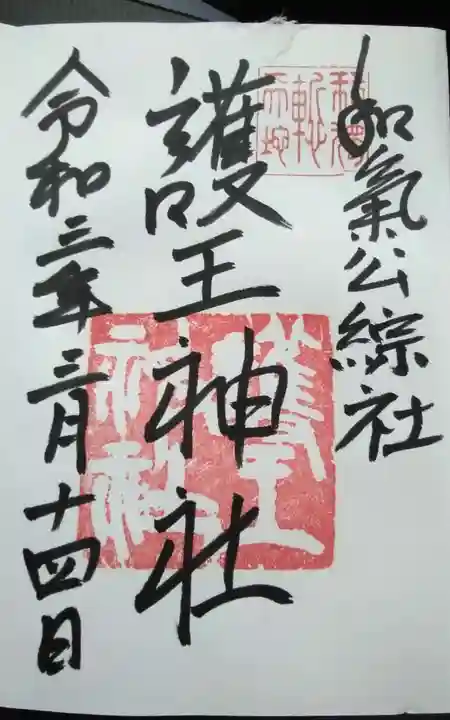 和氣公綜社
護王神社
令和三年三月十四日
護王
神社